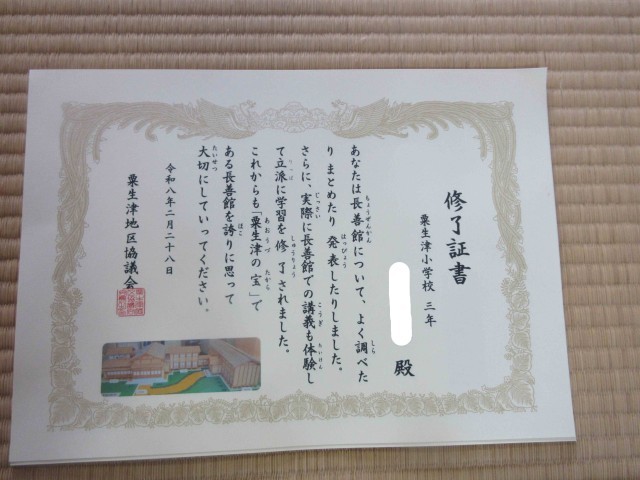 修了証書
粟生津小学校 三年
殿
あなたは長善館について、よく調べた
り まとめたり 発表したりしました。
さらに、実際に長善館での講義も体験し
て立派に学習を修了されました。
これからも「粟生津の宝」で
ある長善館を誇りに思って
大切にしていってください。
令和八年二月二十八日
粟生津地区協議会